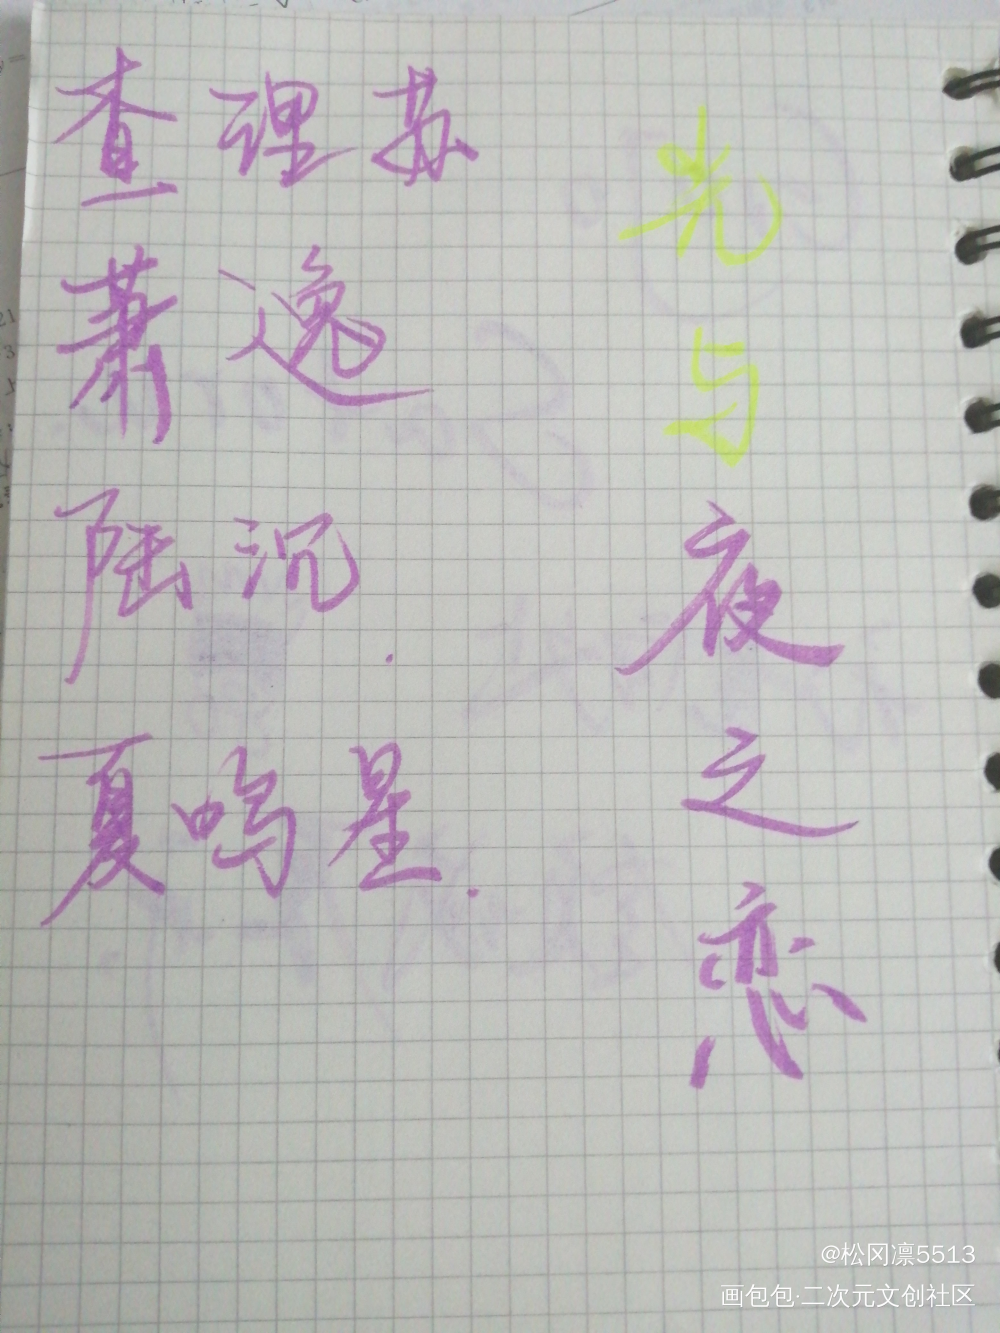 查理苏
萧逸
陆沉.
夏鸣星.
光与夜之恋
@松冈凛5513
画包包·二次元文创社区